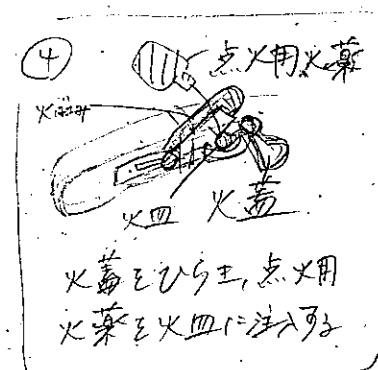 ④
点火用火薬
火ばさみ
火皿 火蓋
火蓋をひらき、点火用
火薬を火皿に注入する